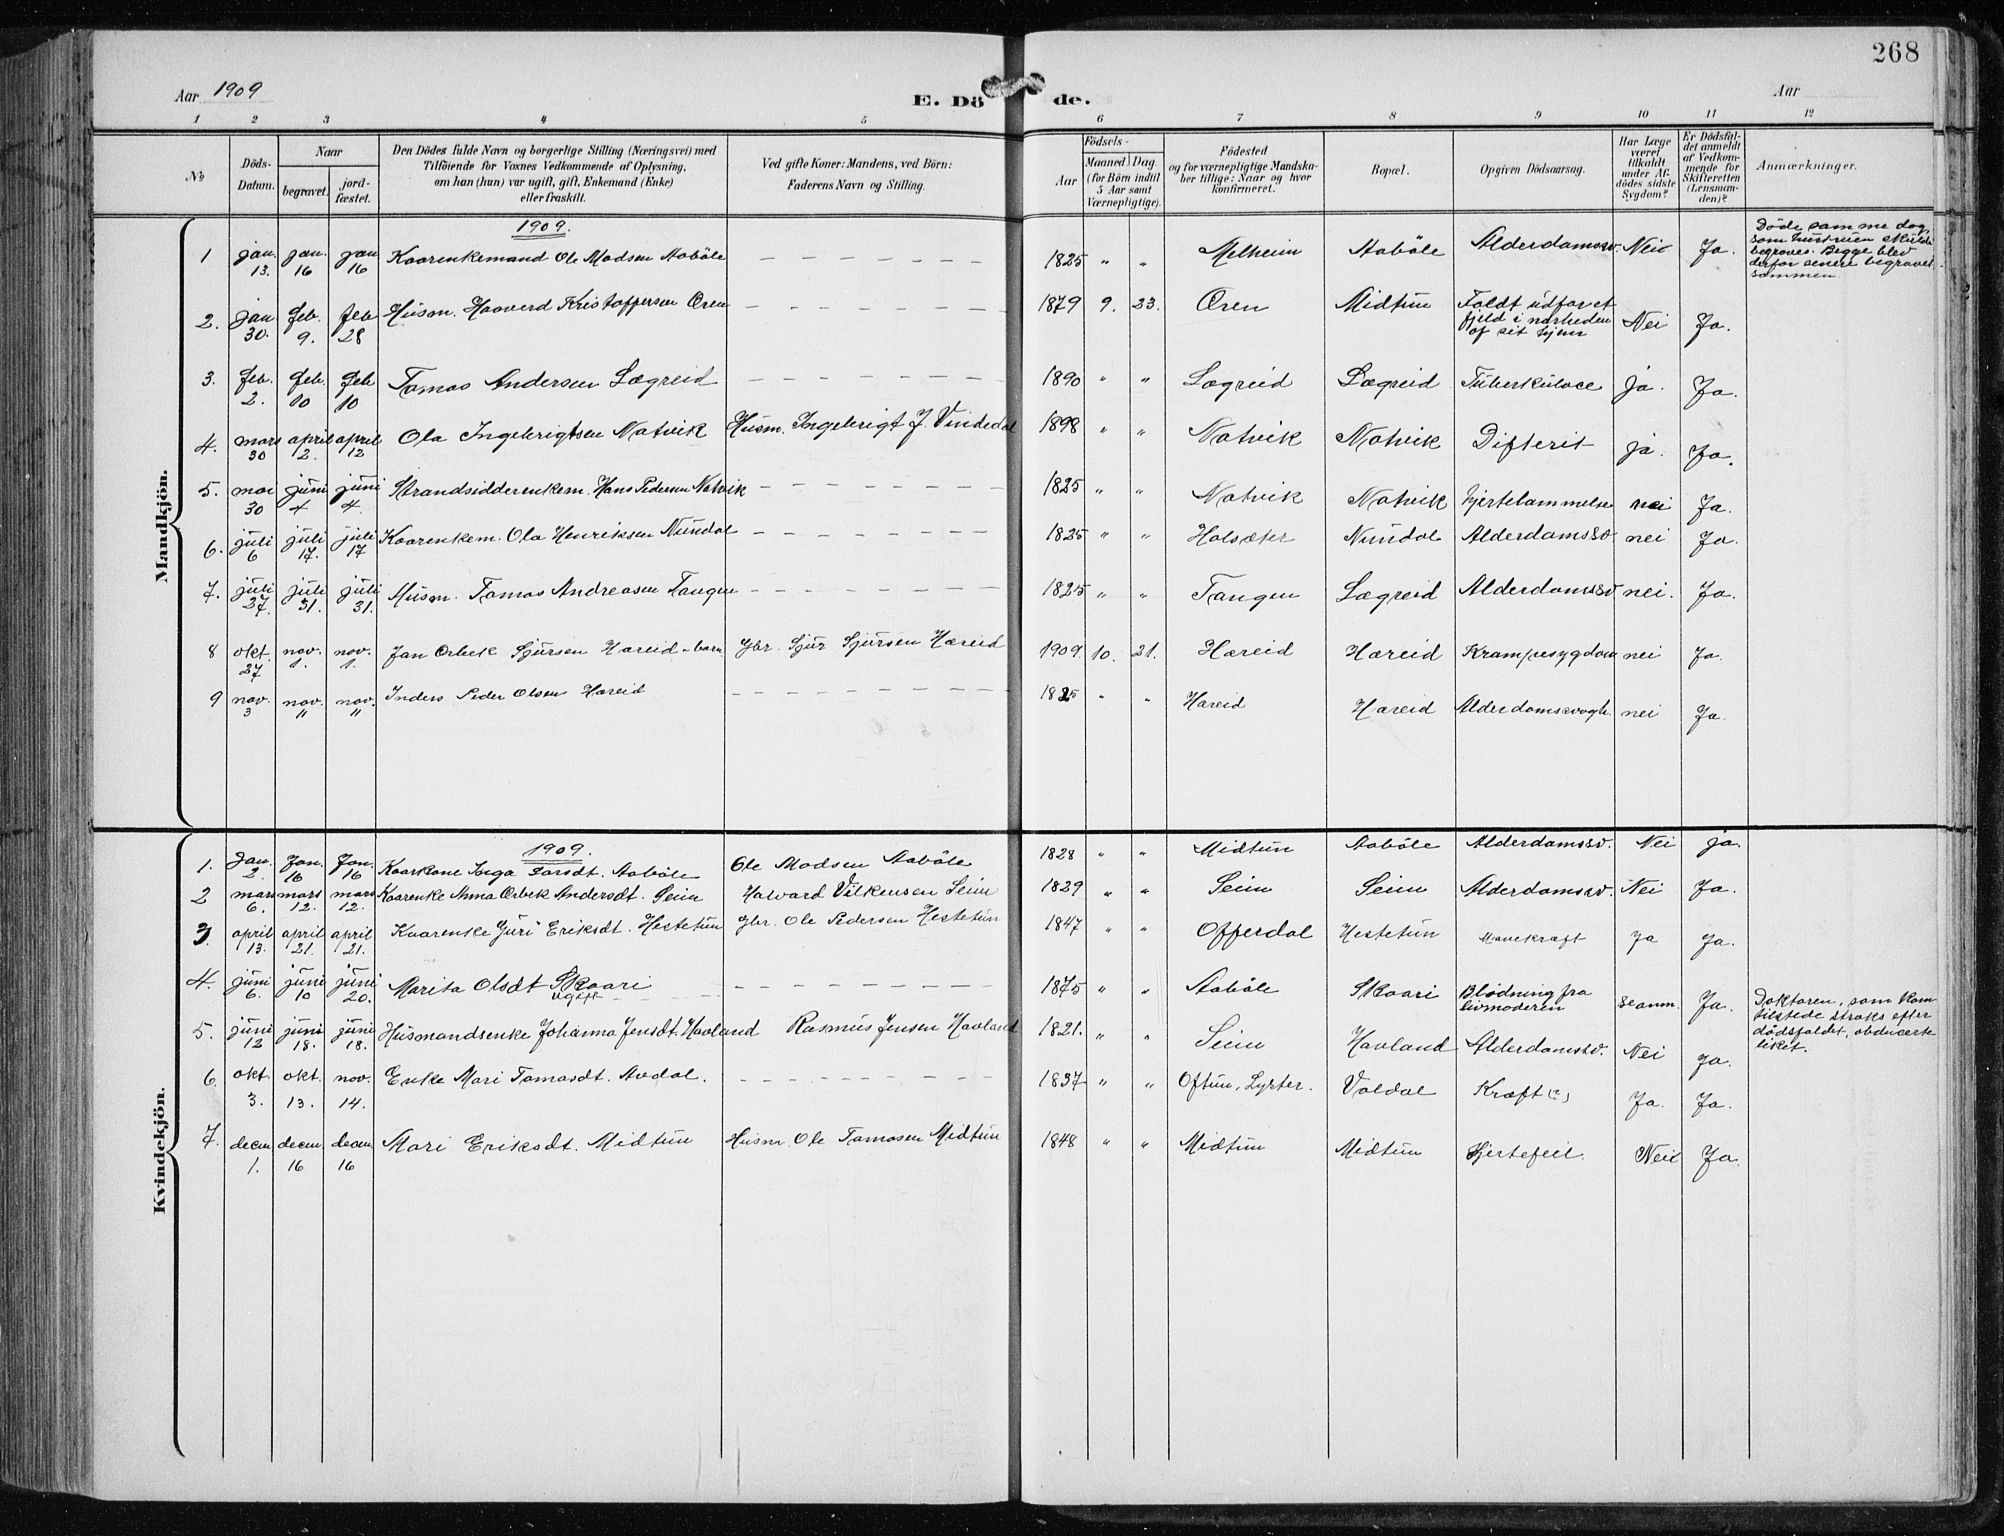 268
Aar 1909
E. Döde.
Aar
1 2 3 4 5 6 7 8 9 10 11 12
No
Döds-Datum.
Naar
begravet.
jord-fæstet.
Den Dödes fulde Navn og borgerlige Stilling (Næringsvei) med
Tilföiende for Voxnes Vedkommende af Oplysning,
om han (hun) var ugift, gift, Enkemand (Enke)
eller fraskilt.
Ved gifte Koner: Mandens, ved Börn:
Faderens Navn og Stilling.
Födsels-
Aar
Maaned Dag
(for Börn indtil
5 Aar samt
Værnepligtige).
Födested
og for værnepligtige Mandska-
ber tillige: Naar og hvor
konfirmeret.
Bopæl.
Opgiven Dödsaarsag.
Har Læge
været
tilkaldt
under Af-
dödes sidste
Sygdom?
Er Dödsfal-
det anmeldt
af Vedkom-
mende for
Skifteretten
(Lensman-
den)?
Anmærkninger.
Mandkjön.
1909.
1 jan. 13. jan. 16 jan 16 Kaarenkemand Ole Madsen Aaböle – 1825 " " Melheim Aaböle Alderdomssv. Nei Ja.
Döde samme dag,
som hustruen skulde
begraves. Begge blev
derfor senere begravet
sammen
2. jan 30. feb. 9. feb 28 Husm. Haaverd Kristoffersen Øren – 1879 9. 23. Øren Midtun Faldt udfor et
fjeld i nærheden
af sit hjem Nei Ja.
3. feb. 2. feb. 10 feb 10 Tomas Andersen Lægreid – 1890 " " Lægreid Lægreid Tuberkulose ja. Ja.
4. mars 30 april 2. april 12 Ola Ingebrigtsen Natvik Husm. Ingebrigt J. Vindedal 1898 " " Natvik Natvik Difterit ja. Ja.
5. mai 30 juni 4 juni 4. Strandsidderenkem. Hans Pedersen Natvik – 1825 " " Natvik Natvik Hjertelammelse nei Ja.
6. juli 6 juli 17. juli 17 Kaarenkem. Ola Henriksen Nundal – 1825 " " Holsæter Nundal Alderdomssv nei Ja.
7. juli 27. juli 31. juli 31. Husm. Tomas Andreasen Tangen – 1825 " " Tangen Lægreid Alderdomssv nei. Ja.
8 okt. 27 nov. 1. nov. 1. Jan Orbek Sjursen Hæreid – barn Gbr. Sjur Sjursen Hæreid 1909. 10. 21. Hæreid Hæreid Krampesygdom nei Ja.
9 nov. 3 nov. " nov. " Inders Peder Olsen Hæreid – 1825 " " Hæreid Hæreid Alderdomssvagh. nei Ja.
Kvindekjön.
1909.
1. Jan. 2. Jan. 16 Jan. 16 Kaarkone Inga Larsdt. Aaböle Ole Madsen Aaböle 1828 " " Midtun Aaböle Alderdomssv. Nei ja.
2 mars 6. mars 12. mars 12. Kaarenke Anna Orbek Andersdt. Seim Halvard Vilkensen Seim 1829 " " Seim Seim Alderdomssv. Nei Ja.
3 april 13. april 21. april 21. Kaarenke Guri Eriksdt. Hestetun Gbr. Ole Pedersen Hestetun 1847 " " Offerdal Hestetun Mavekræft Ja Ja.
4. juni 6. juni 10 juni 20. Marita Olsdt Skaari
ugift – 1875 " " Aaböle Skaari Blødning fra
livmoderen Ja.
Doktoren, som kom
tilstede straks efter
dödsfaldet, obducerte
liket.
5. juni 12 juni 18. juni 18. Husmandsenke Johanna Jensdt. Havland Rasmus Jensen Havland 1821. " " Seim Havland Alderdomssv. Nei Ja.
6. okt. 3. okt. 13. nov. 14. Enke Mari Tomasdt. Avdal. – 1837 " " Oftun, Lyster. Voldal Kræft (?) Ja. Ja.
7. decm. 1. decm. 16 decm. 16 Mari Eriksdt. Midtun Husm Ole Tomasen Midtun 1848 " " Midtun Midtun Hjertefeil. Nei Ja.